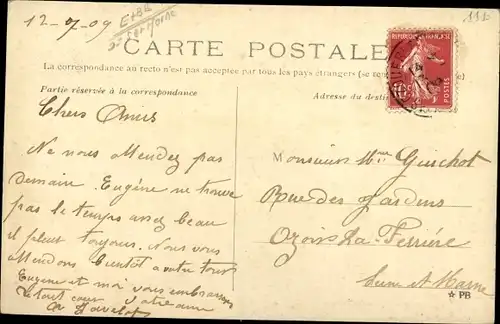 12-7-09
111
CARTE POSTALE
La correspondance au recto n'est pas acceptée par tous les pays étrangers (se
Partie réservée à la correspondance
Adresse du
REPUBLIQUE FRANÇAISE
10c
POSTES
Chers Amis
Ne nous attendez pas
demain. Eugène ne trouve
pas le temps assez beau
il pleut toujours. Nous vous
attendons bientôt a votre tour
Eugène et moi vous embrassons
de tout cœur Votre amie
Monsieur Guichot
Rue des Jardins
Ozoir La Ferrière
Seine et Marne
PB